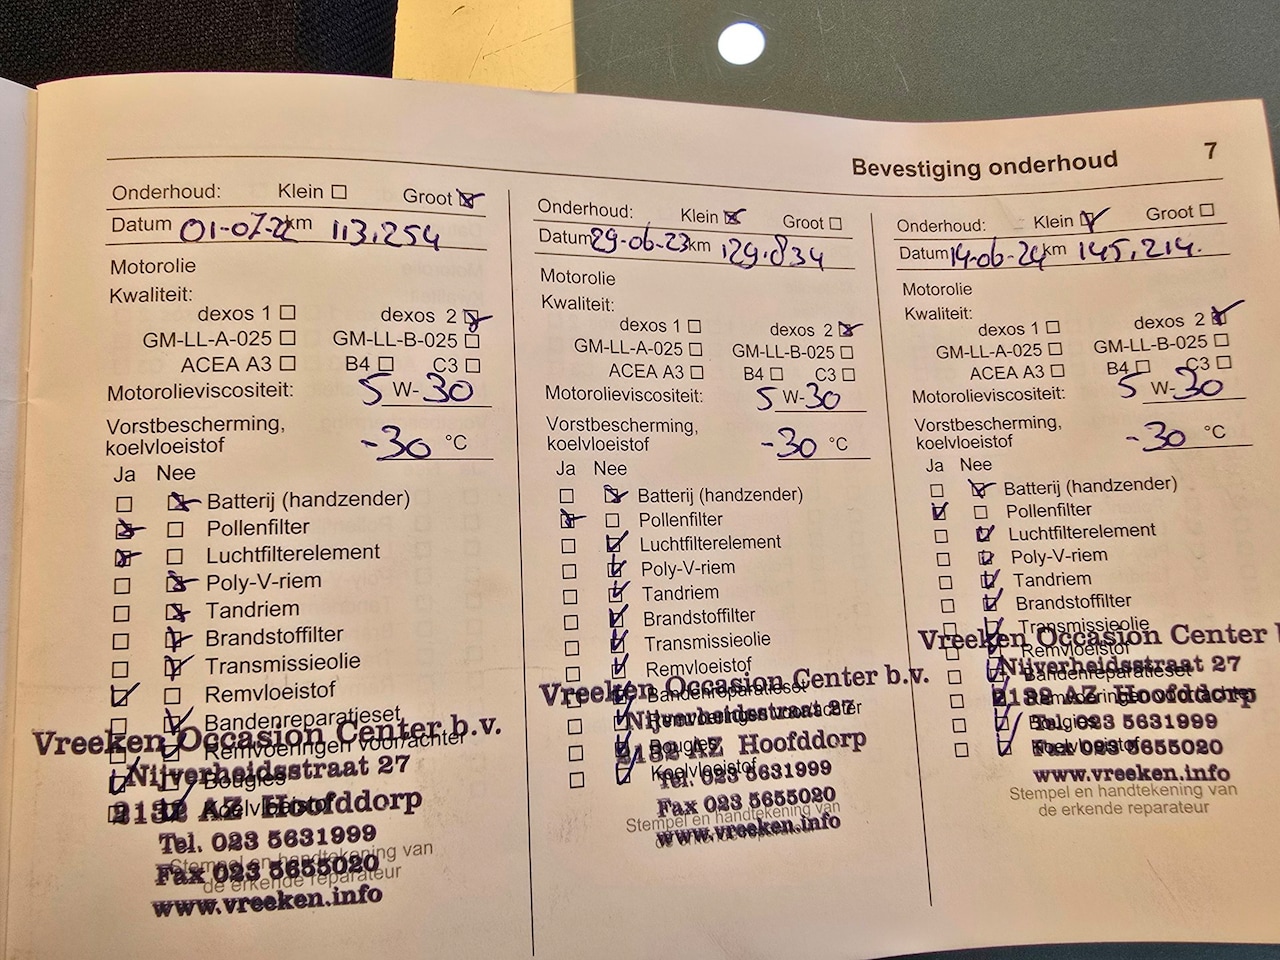 Bevestiging onderhoud 7
Onderhoud: Klein Groot
Datum 01-07-22 km 113.254
Motorolie
Kwaliteit:
dexos 1 dexos 2
GM-LL-A-025 GM-LL-B-025
ACEA A3 B4 C3
Motorolieviscositeit: 5 W-30
Vorstbescherming,
koelvloeistof -30 °C
Ja Nee
Batterij (handzender)
Pollenfilter
Luchtfilterelement
Poly-V-riem
Tandriem
Brandstoffilter
Transmissieolie
Remvloeistof
Bandenreparatieset
Remvoeringen voor/achter
Bougies
Koelvloeistof
Vreeken Occasion Center b.v.
Nijverheidsstraat 27
2132 AZ Hoofddorp
Tel. 023 5631999
Fax 023 5655020
www.vreeken.info
Stempel en handtekening van
de erkende reparateur
Onderhoud: Klein Groot
Datum 29-06-23 km 129.834
Motorolie
Kwaliteit:
dexos 1 dexos 2
GM-LL-A-025 GM-LL-B-025
ACEA A3 B4 C3
Motorolieviscositeit: 5 W-30
Vorstbescherming,
koelvloeistof -30 °C
Ja Nee
Batterij (handzender)
Pollenfilter
Luchtfilterelement
Poly-V-riem
Tandriem
Brandstoffilter
Transmissieolie
Remvloeistof
Bandenreparatieset
Remvoeringen voor/achter
Bougies
Koelvloeistof
Vreeken Occasion Center b.v.
Nijverheidsstraat 27
2132 AZ Hoofddorp
Tel. 023 5631999
Fax 023 5655020
www.vreeken.info
Stempel en handtekening van
de erkende reparateur
Onderhoud: Klein Groot
Datum 14-06-24 km 145.214.
Motorolie
Kwaliteit:
dexos 1 dexos 2
GM-LL-A-025 GM-LL-B-025
ACEA A3 B4 C3
Motorolieviscositeit: 5 W-30
Vorstbescherming,
koelvloeistof -30 °C
Ja Nee
Batterij (handzender)
Pollenfilter
Luchtfilterelement
Poly-V-riem
Tandriem
Brandstoffilter
Transmissieolie
Remvloeistof
Bandenreparatieset
Remvoeringen voor/achter
Bougies
Koelvloeistof
Vreeken Occasion Center
Nijverheidsstraat 27
2132 AZ Hoofddorp
Tel. 023 5631999
Fax 023 5655020
www.vreeken.info
Stempel en handtekening van
de erkende reparateur